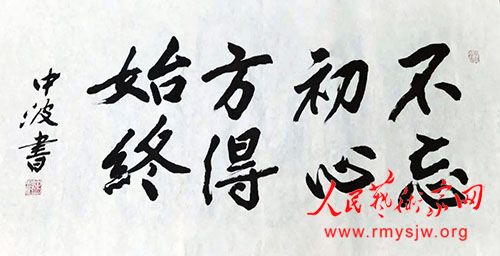 不忘
初心
方得
始終
中波書
人民藝術家网
www.rmysjw.org